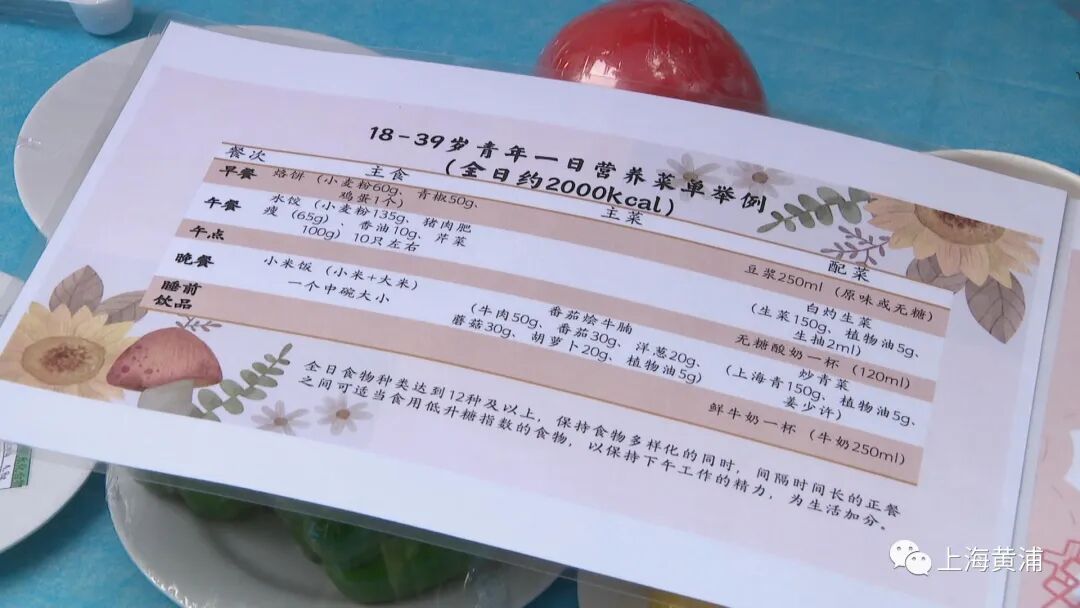 18-39岁青年一日营养菜单举例
(全日约2000Kcal)
餐次 主食 主菜 配菜
早餐 烙饼(小麦粉60g、青椒50g、
鸡蛋1个)
豆浆250ml(原味或无糖)
午餐 水饺(小麦粉135g、猪肉肥
瘦(65g)、香油10g、芹菜
100g)10只左右
白灼生菜
(生菜150g、植物油5g、
生抽2ml)
午点 无糖酸奶一杯(120ml)
晚餐 小米饭(小米+大米)
一个中碗大小
番茄烩牛腩
(牛肉50g、番茄30g、洋葱20g、
蘑菇30g、胡萝卜20g、植物油5g)
炒青菜
(上海青150g、植物油5g、
姜少许)
睡前
饮品
鲜牛奶一杯(牛奶250ml)
全日食物种类达到12种及以上,保持食物多样化的同时,间隔时间长的正餐
之间可适当食用低升糖指数的食物,以保持下午工作的精力,为生活加分。
上海黄浦